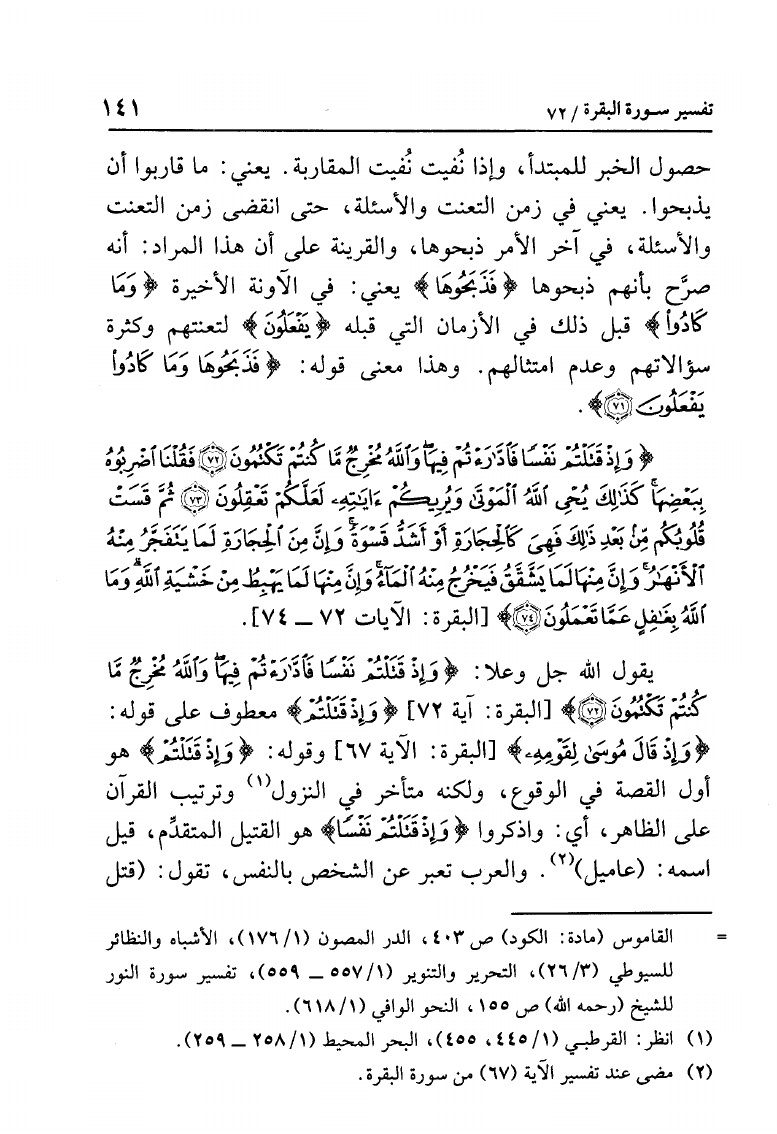 تفسير سورة البقرة / ٧٢ ١٤١
حصول الخبر للمبتدأ، وإذا نُفيت نُفيت المقاربة. يعني: ما قاربوا أن
يذبحوا. يعني في زمن التعنت والأسئلة، حتى انقضى زمن التعنت
والأسئلة، في آخر الأمر ذبحوها، والقرينة على أن هذا المراد: أنه
صرَّح بأنهم ذبحوها ﴿فَذَبَحُوهَا﴾ يعني: في الآونة الأخيرة ﴿وَمَا
كَادُوا۟﴾ قبل ذلك في الأزمان التي قبله ﴿يَفْعَلُونَ﴾ لتعنتهم وكثرة
سؤالاتهم وعدم امتثالهم. وهذا معنى قوله: ﴿فَذَبَحُوهَا وَمَا كَادُوا۟
يَفْعَلُونَ ٧١﴾.
﴿وَإِذْ قَتَلْتُمْ نَفْسًا فَٱدَّٰرَْٰٔتُمْ فِيهَا ۖ وَٱللَّهُ مُخْرِجٌ مَّا كُنتُمْ تَكْتُمُونَ ٧٢ فَقُلْنَا ٱضْرِبُوهُ
بِبَعْضِهَا ۚ كَذَٰلِكَ يُحْىِ ٱللَّهُ ٱلْمَوْتَىٰ وَيُرِيكُمْ ءَايَٰتِهِۦ لَعَلَّكُمْ تَعْقِلُونَ ٧٣ ثُمَّ قَسَتْ
قُلُوبُكُم مِّنۢ بَعْدِ ذَٰلِكَ فَهِىَ كَٱلْحِجَارَةِ أَوْ أَشَدُّ قَسْوَةً ۚ وَإِنَّ مِنَ ٱلْحِجَارَةِ لَمَا يَتَفَجَّرُ مِنْهُ
ٱلْأَنْهَٰرُ ۚ وَإِنَّ مِنْهَا لَمَا يَشَّقَّقُ فَيَخْرُجُ مِنْهُ ٱلْمَآءُ ۚ وَإِنَّ مِنْهَا لَمَا يَهْبِطُ مِنْ خَشْيَةِ ٱللَّهِ ۗ وَمَا
ٱللَّهُ بِغَٰفِلٍ عَمَّا تَعْمَلُونَ ٧٤﴾ [البقرة: الآيات ٧٢ ــ ٧٤].
يقول الله جل وعلا: ﴿وَإِذْ قَتَلْتُمْ نَفْسًا فَٱدَّٰرَْٰٔتُمْ فِيهَا ۖ وَٱللَّهُ مُخْرِجٌ مَّا
كُنتُمْ تَكْتُمُونَ ٧٢﴾ [البقرة: آية ٧٢] ﴿وَإِذْ قَتَلْتُمْ﴾ معطوف على قوله:
﴿وَإِذْ قَالَ مُوسَىٰ لِقَوْمِهِۦ﴾ [البقرة: الآية ٦٧] وقوله: ﴿وَإِذْ قَتَلْتُمْ﴾ هو
أول القصة في الوقوع، ولكنه متأخر في النزول(١) وترتيب القرآن
على الظاهر، أي: واذكروا ﴿وَإِذْ قَتَلْتُمْ نَفْسًا﴾ هو القتيل المتقدِّم، قيل
اسمه: (عاميل)(٢). والعرب تعبر عن الشخص بالنفس، تقول: (قتل
= القاموس (مادة: الكود) ص ٤٠٣، الدر المصون (١/ ١٧٦)، الأشباه والنظائر
للسيوطي (٣/ ٢٦)، التحرير والتنوير (١/ ٥٥٧ ــ ٥٥٩)، تفسير سورة النور
للشيخ (رحمه الله) ص ١٥٥، النحو الوافي (١/ ٦١٨).
(١) انظر: القرطبي (١/ ٤٤٥، ٤٥٥)، البحر المحيط (١/ ٢٥٨ ــ ٢٥٩).
(٢) مضى عند تفسير الآية (٦٧) من سورة البقرة.